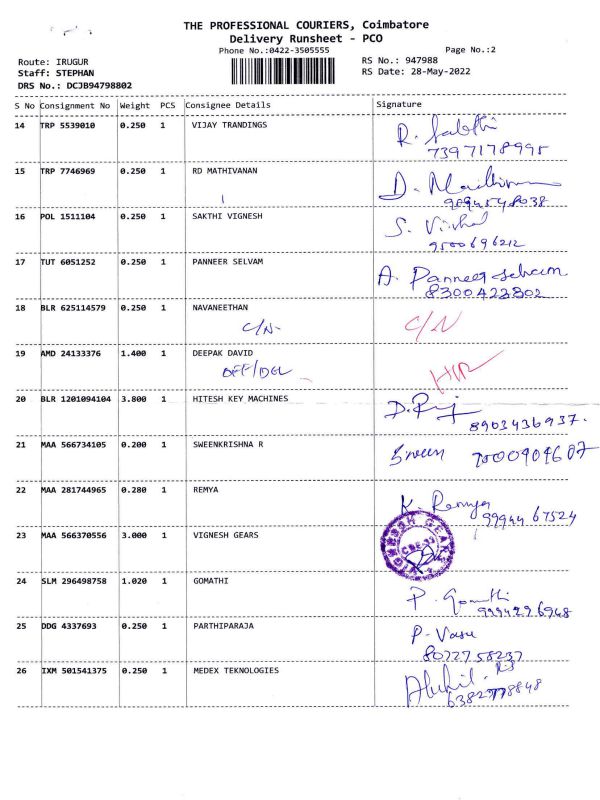 THE PROFESSIONAL COURIERS, Coimbatore
Delivery Runsheet - PCO
Phone No.:0422-3505555
Page No.:2
Route: IRUGUR
RS No.: 947988
Staff: STEPHAN
RS Date: 28-May-2022
DRS No.: DCJB94798802
S No Consignment No Weight PCS Consignee Details Signature
14 TRP 5539010 0.250 1 VIJAY TRANDINGS
7397178995
15 TRP 7746969 0.250 1 RD MATHIVANAN
16 POL 1511104 0.250 1 SAKTHI VIGNESH
9500696212
17 TUT 6051252 0.250 1 PANNEER SELVAM A. Panneer selvam
8300423802
18 BLR 625114579 0.250 1 NAVANEETHAN
C/N C/N
19 AMD 24133376 1.400 1 DEEPAK DAVID
OFF/DEL
20 BLR 1201094104 3.800 1 HITESH KEY MACHINES
8903436937.
21 MAA 566734105 0.200 1 SWEENKRISHNA R Sween
22 MAA 281744965 0.280 1 REMYA K. Remya
99944 67524
23 MAA 566370556 3.000 1 VIGNESH GEARS
24 SLM 296498758 1.020 1 GOMATHI P. Gomathi
9994296948
25 DDG 4337693 0.250 1 PARTHIPARAJA P. Vasu
8072758237
26 IXM 501541375 0.250 1 MEDEX TEKNOLOGIES